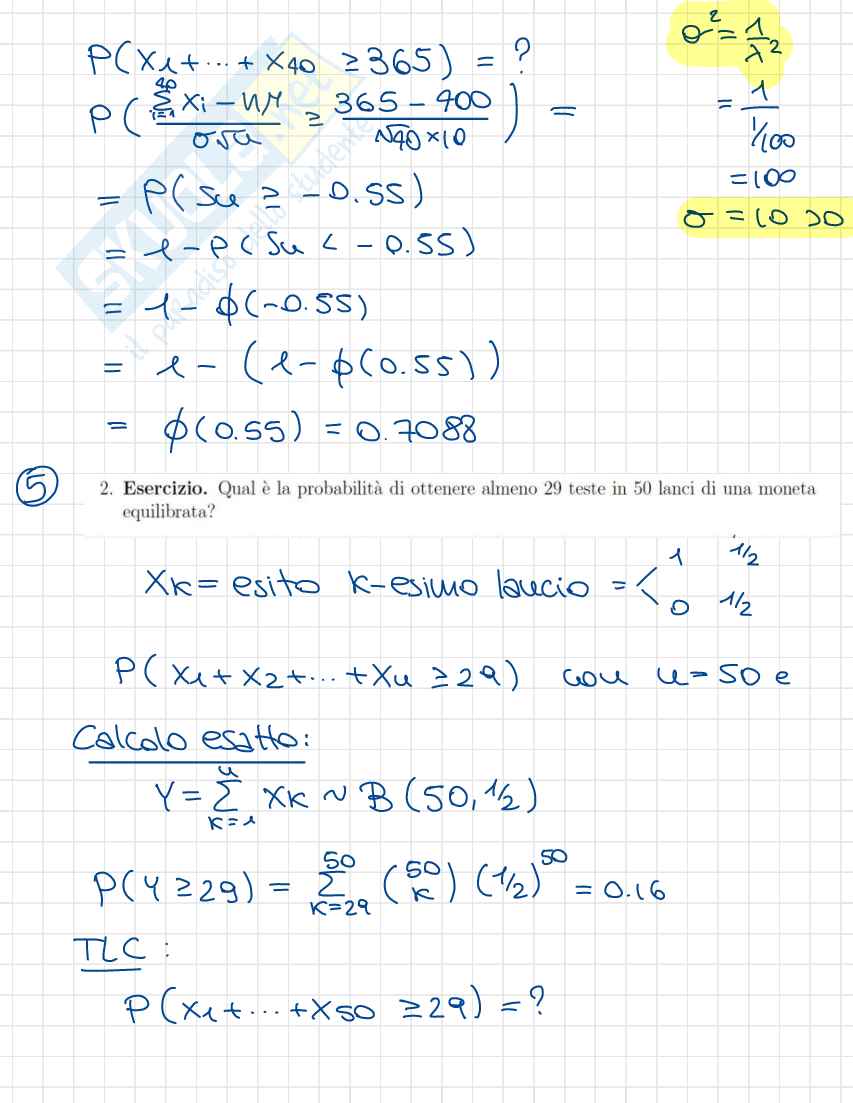 P(X1+...+X40 ≥365) = ?
P( (∑_{i=1}^{40} Xi − nμ)/(σ√n) ≥ (365 − 400)/(√40×10) ) =
= P(Sn ≥ −0.55)
= 1−P(Sn < −0.55)
= 1− ϕ(−0.55)
= 1 − (1−ϕ(0.55))
= ϕ(0.55) = 0.7088
σ² = 1/λ²
= 1/(1/100)
= 100
σ = 10 >0
SKUOLA.net
il paradiso dello studente
5
2. Esercizio. Qual è la probabilità di ottenere almeno 29 teste in 50 lanci di una moneta
equilibrata?
XK = esito K-esimo lancio = < 1 1/2
0 1/2
P(X1+X2+...+Xn ≥29) con n=50 e
Calcolo esatto:
Y = ∑_{K=1}^{n} XK ~ B(50, 1/2)
P(Y ≥29) = ∑_{K=29}^{50} (50 K) (1/2)^50 = 0.16
TLC :
P(X1+...+X50 ≥29) = ?